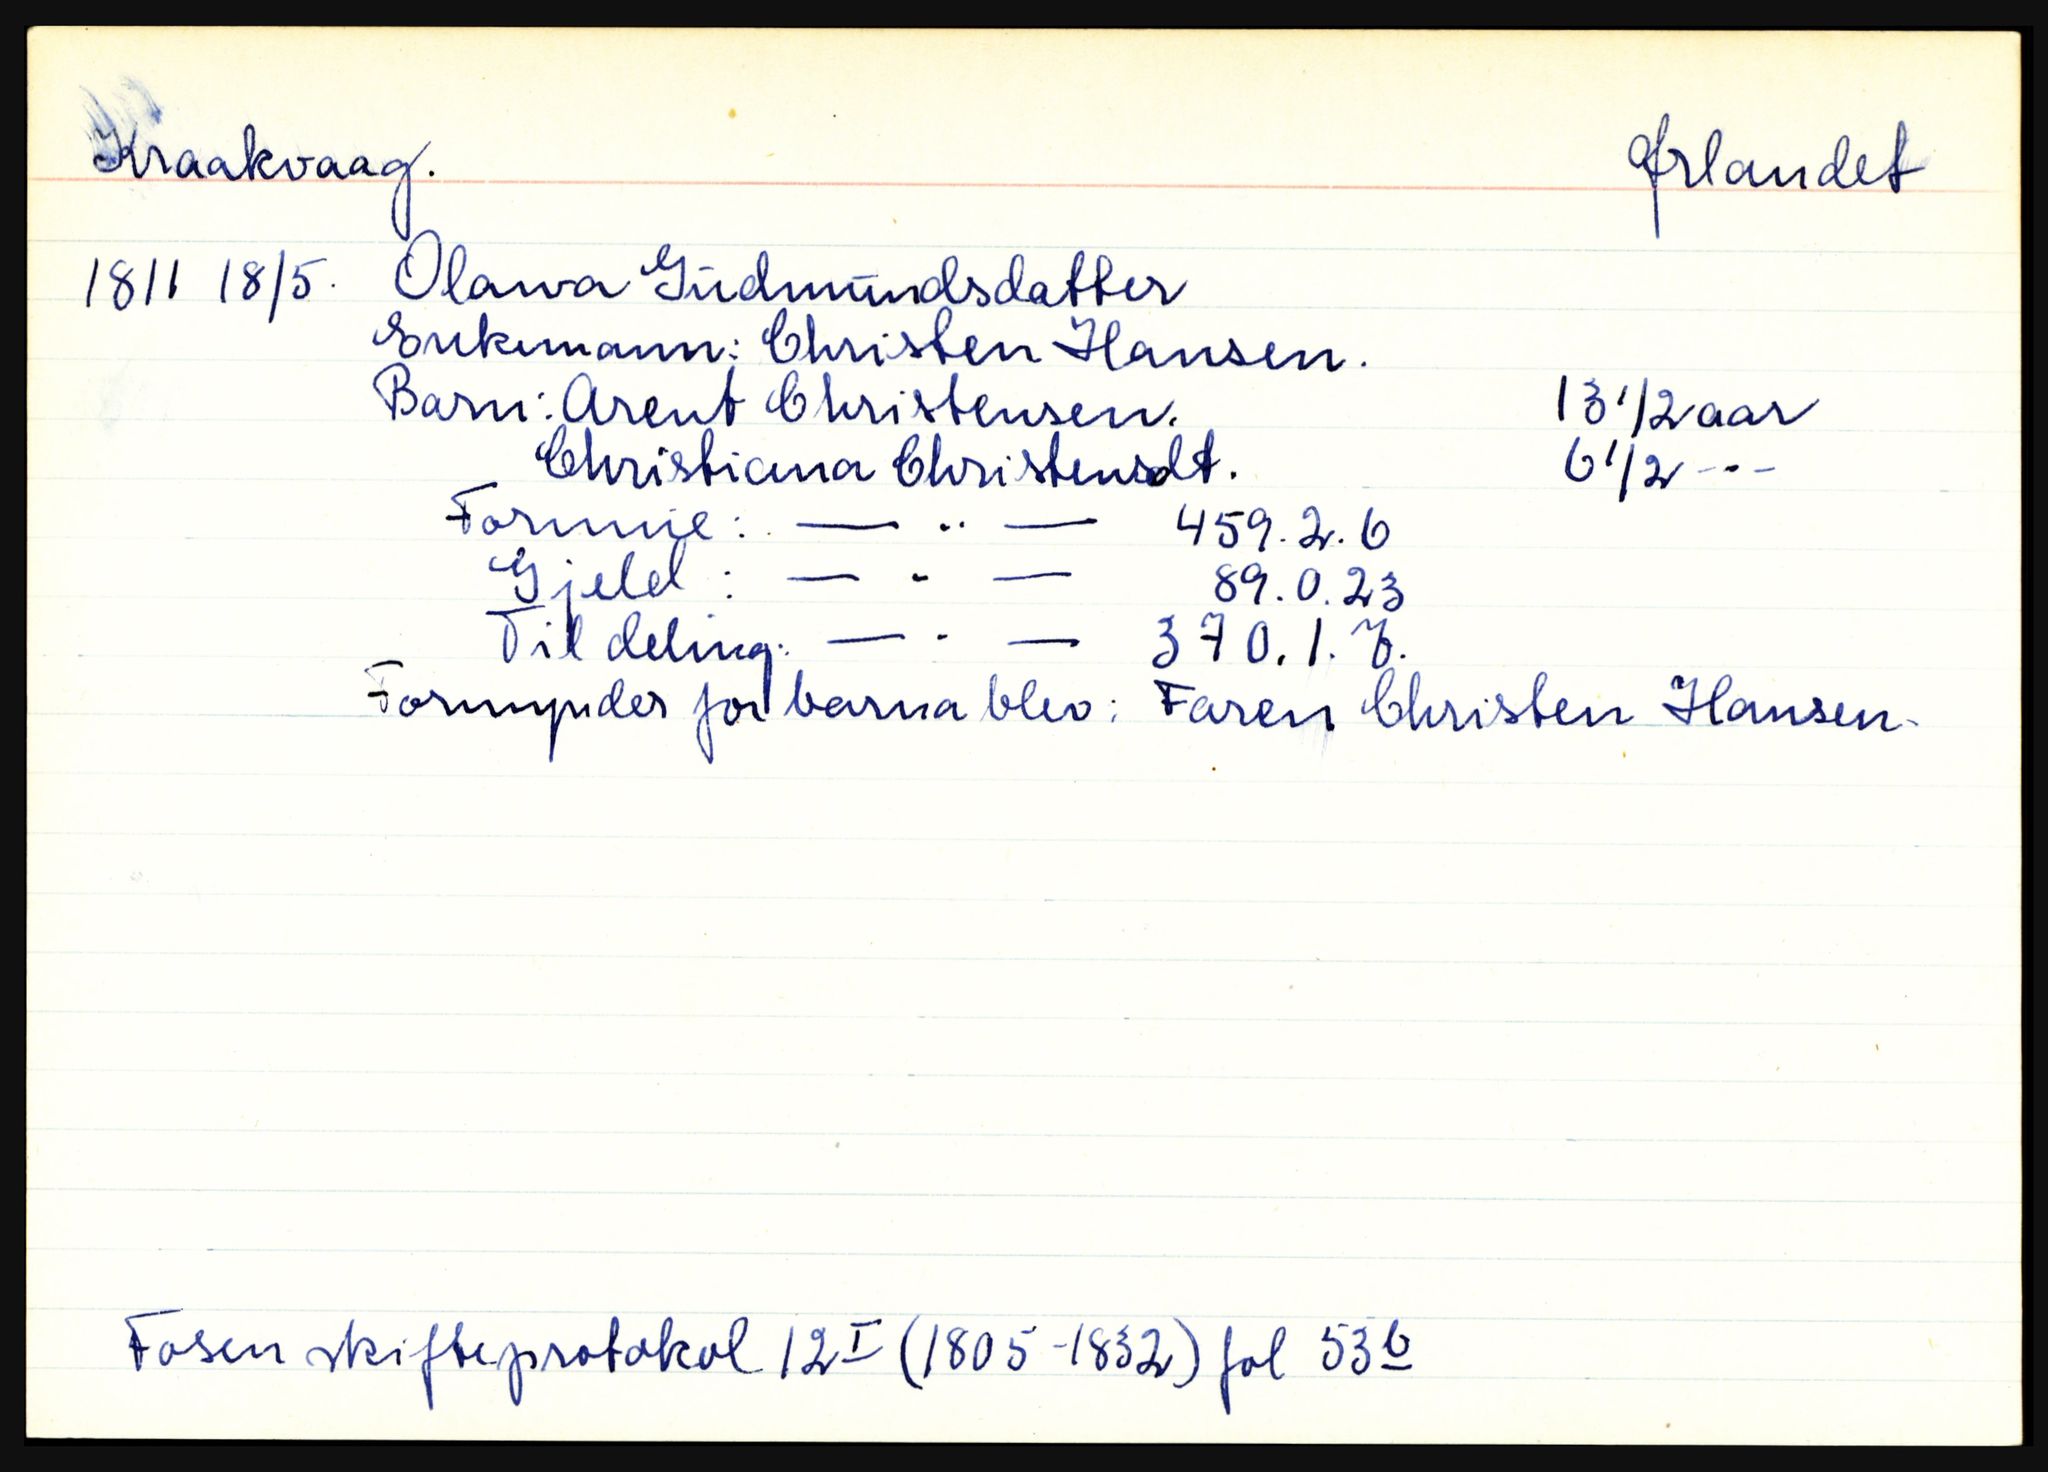 Kraakvaag. Ørlandet
1811 18/5. Olava Gudmundsdatter
Enkemann: Christen Hansen.
Barn: Arent Christensen. 13 1/2 aar
Christiana Christensdt. 6 1/2 -"-
Formue: — .. — 459.2.6
Gjeld: — . — 89.0.23
Til deling: — . — 370.1.7.
Formynder for barna blev: Faren Christen Hansen.
Fosen skifteprotokol 12 I (1805-1832) fol 53 b